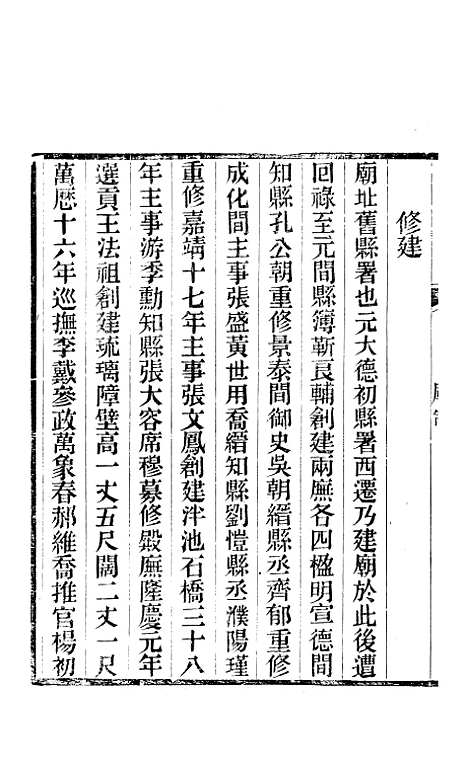 修建
廟址舊縣署也元大德初縣署西遷乃建廟於此後遭
回祿至元間縣簿靳良輔創建兩廡各四楹明宣德間
知縣孔公朝重修景泰間御史吳朝縉縣丞齊郁重修
成化間主事張盛黃世用喬縉知縣劉愷縣丞濮陽瑾
重修嘉靖十七年主事張文鳳創建泮池石橋三十八
年主事游季勳知縣張大容席穆募修殿廡隆慶元年
選貢王法祖創建琉璃障壁高一丈五尺闊二丈一尺
萬厯十六年巡撫李戴參政萬象春郝維喬推官楊初